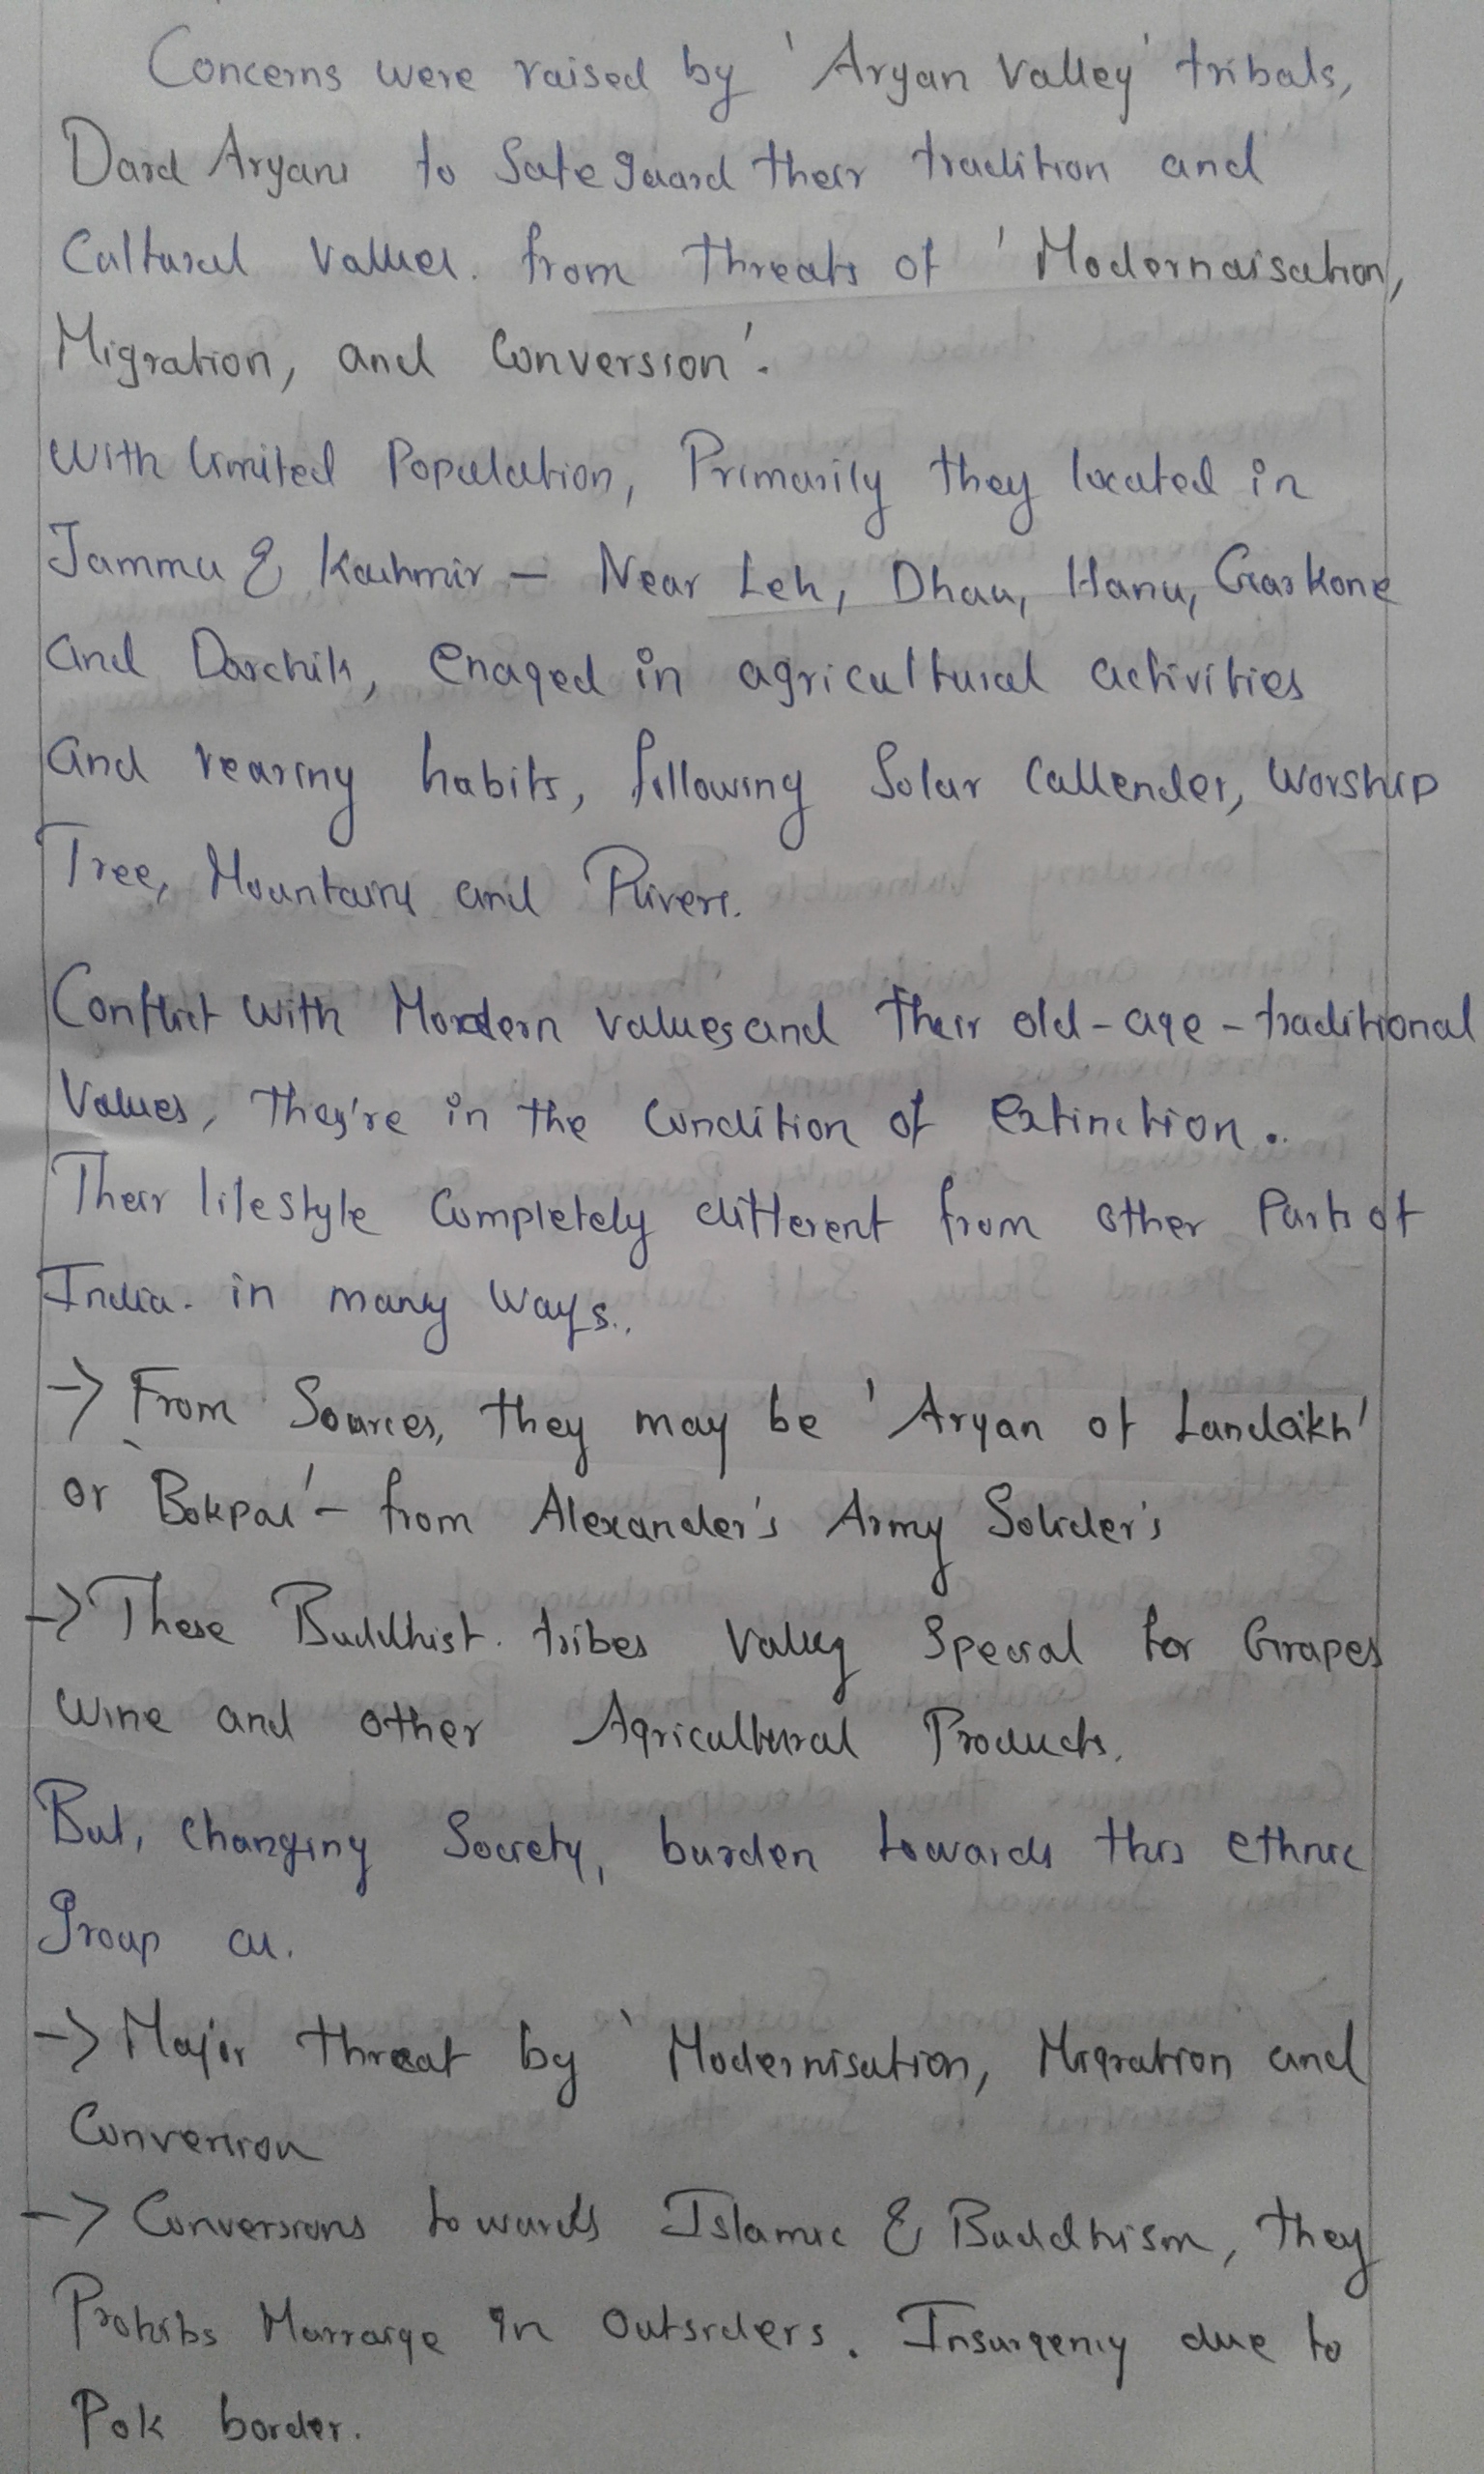 Concerns were raised by 'Aryan Valley' tribals,
Dard Aryans to Safeguard their tradition and
Cultural Values. from threats of 'Modernaisation,
Migration, and Conversion'.
With limited Population, Primarily they located in
Jammu & Kashmir – Near Leh, Dhau, Hanu, Garkone
and Darchik, enaged in agricultural activities
and rearing habits, following Solar Callender, Worship
Tree, Mountains and Rivers.
Conflict with Mordern values and their old-age-traditional
Values, they're in the Condition of extinction.
Their lifestyle Completely different from other Parts of
India. in many ways.
-> From Sources, they may be 'Aryan of Landakh'
or 'Bokpas' – from Alexander's Army Solider's
-> These Buddhist. tribes Valley Special for Grapes
Wine and other Agricultural Products.
But, changing Society, burden towards this ethnic
Group as.
-> Major threat by 'Modernisation, Migration and
Conversion
-> Conversions towards Islamic & Buddhism, they
Prohibs Marraige in outsiders. Insurgency due to
Pok border.